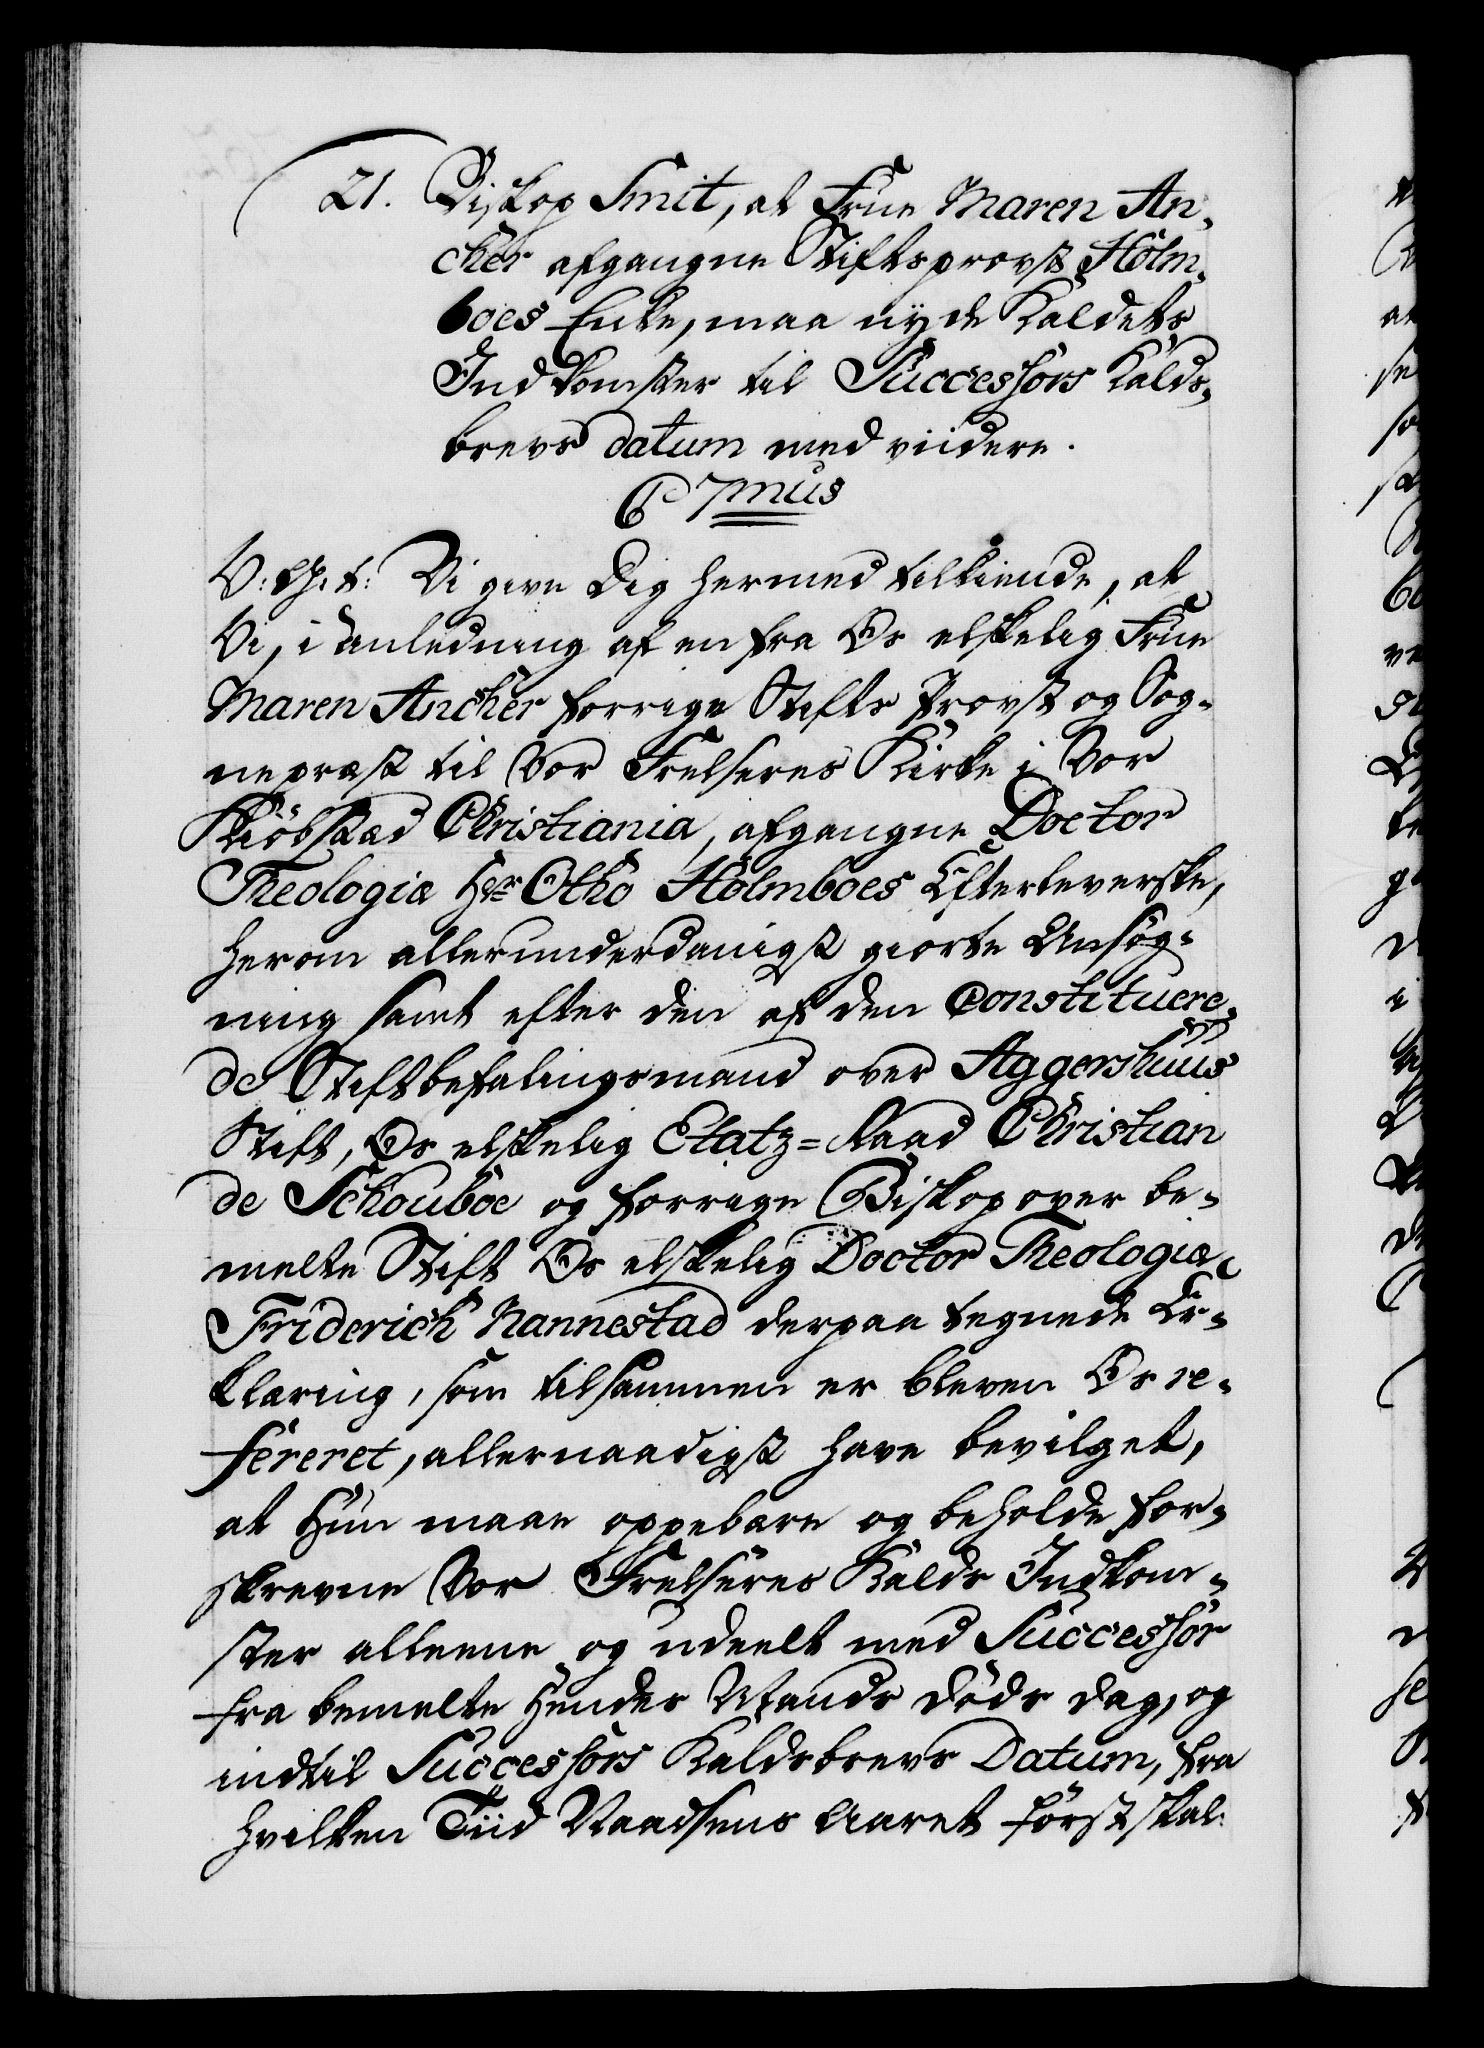 21. Biskop Smit, at Frue Maren An-
cher afgangne Stiftsprovst Holm-
boes Enke, maa nyde Kaldets
Indkomster til Successors Kalds-
brevs datum med viidere.
C7mus
V: G: t: Vi give Dig hermed tilkiende, at
Vi, i Anledning af en fra Os elskelig Frue
Maren Ancher forrige Stifts Provst og Sog-
nepræst til Vor Frelseres Kirke i Vor
Kiöbstæd Christiania, afgangne Doctor
Theologiæ Hr Otho Holmboes Efterleverske,
herom allerunderdanigst giorte Ansög-
ning samt efter den af den Constituere-
de Stiftbefalingsmand over Aggershuus
Stift, Os elskelig Etatz-Raad Christian
de Schouboe og forrige Biskop over be-
melte Stift Os elskelig Doctor Theologiæ
Friderich Nannestad derpaa tegnede Er-
klæring, som tilsammen er bleven Os re-
fereret, allernaadigst have bevilget,
at Hun maae oppebære og beholde for-
skrevne Vor Frelseres Kalds Indkom-
ster alleene og udeelt med Successor
fra bemelte Hendes Mands döds dag, og
indtil Successors Kaldsbrevs Datum, fra
hvilken Tiid Naadsens Aaret först skal